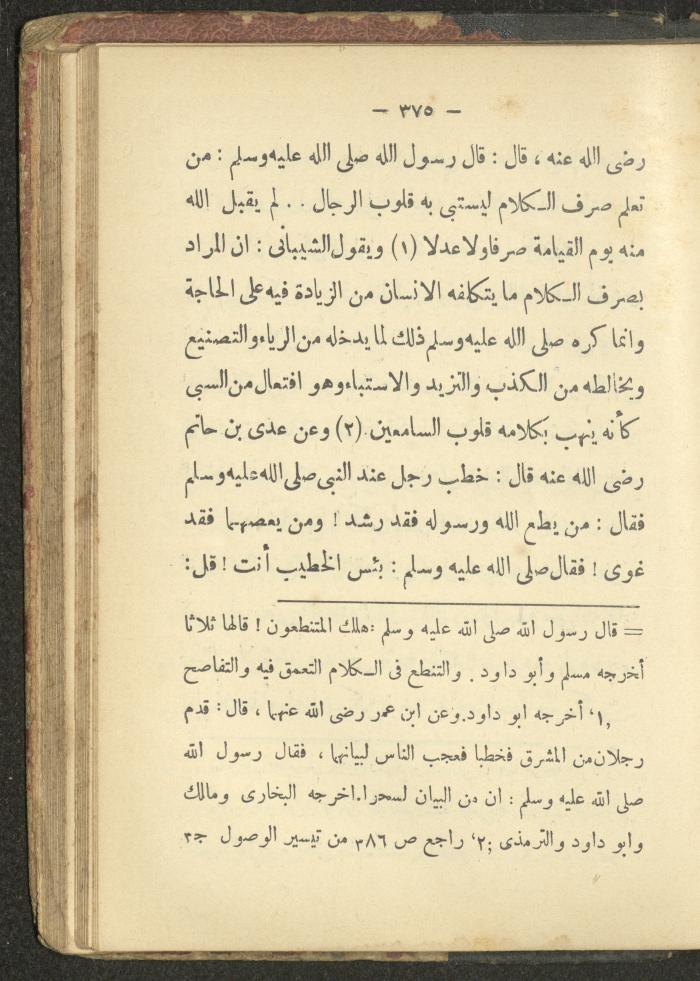 — ٣٧٥ —
رضى الله عنه ، قال : قال رسول الله صلى الله عليه وسلم : من
تعلم صرف الـكلام ليستبى به قلوب الرجال . . لم يقبل الله
منه يوم القيامة صرفاولاعدلا (١) ويقول الشيبانى : ان المراد
بصرف الـكلام ما يتكلفه الانسان من الزيادة فيه على الحاجة
وانما كره صلى الله عليه وسلم ذلك لما يدخله من الرياء والتصنيع
ويخالطه من الـكذب والتزيد والاستباءوهو افتعال من السبى
كأنه ينهب بكلامه قلوب السامعين.(٢) وعن عدى بن حاتم
رضى الله عنه قال : خطب رجل عند النبى صلى الله عليه وسلم
فقال : من يطع الله ورسوله فقد رشد ! ومن يعصهما فقد
غوى ! فقال صلى الله عليه وسلم : بئس الخطيب أنت ! قل :
= قال رسول الله صلى الله عليه وسلم :هلك المتنطعون ! قالها ثلاثا
أخرجه مسلم وأبو داود . والتنطع فى الـكلام التعمق فيه والتفاصح
,١‘ أخرجه ابو داود.وعن ابن عمر رضى الله عنهما ، قال : قدم
رجلان من المشرق فخطبا فعجب الناس لبيانهما ، فقال رسول الله
صلى الله عليه وسلم : ان من البيان لسحرا.اخرجه البخارى ومالك
وابو داود والترمذى ;٢‘ راجع ص ٣٨٦ من تيسير الوصول ج٣